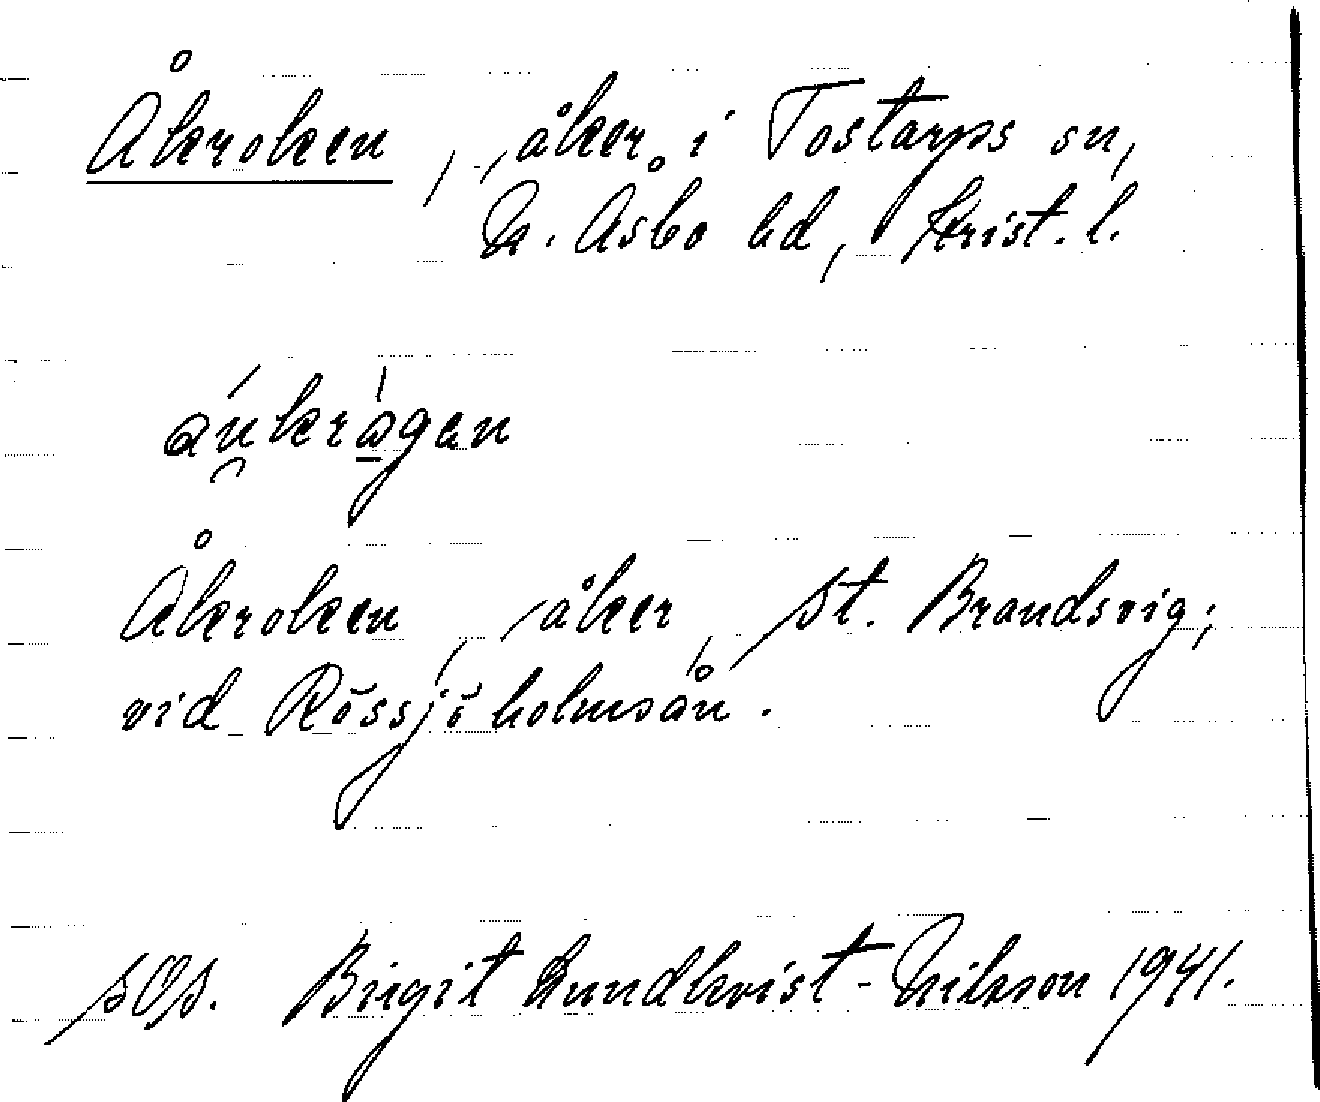 Åkroken, åker i Tostarps sn,
N. Åsbo hd, Krist. l.
Åkroken, åker, St. Brandsvig;
vid Rössjöholmsån.
sOs. Birgit Lundkvist-Nilsson 1941.